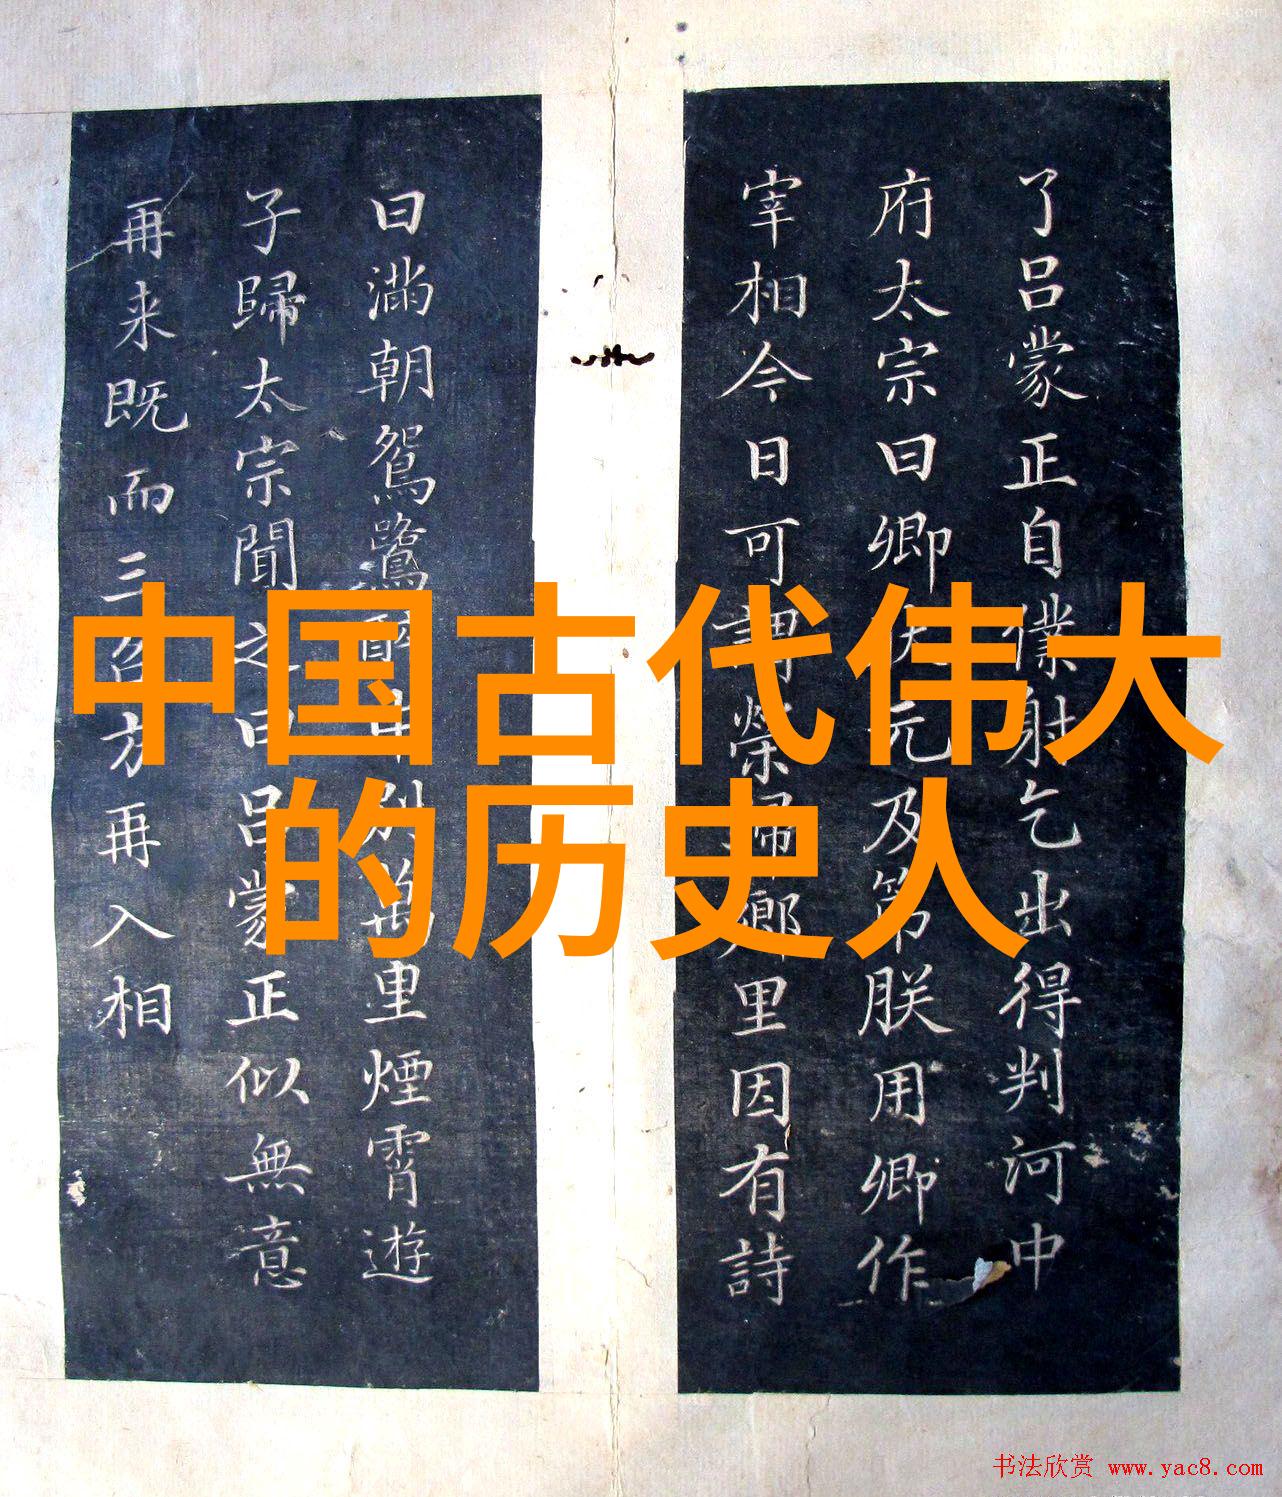 中国古代伟大
的历史人
了吕蒙正自僕射乞出得判河中
府太宗曰卿状元及第朕用卿作
宰相今日可謂榮歸鄉里因有詩
曰滿朝鴛鷺醉中別萬里煙霄遊
子歸太宗聞之曰吕蒙正似無意
再来既而三召方再入相
书法欣赏 www.yac8.com